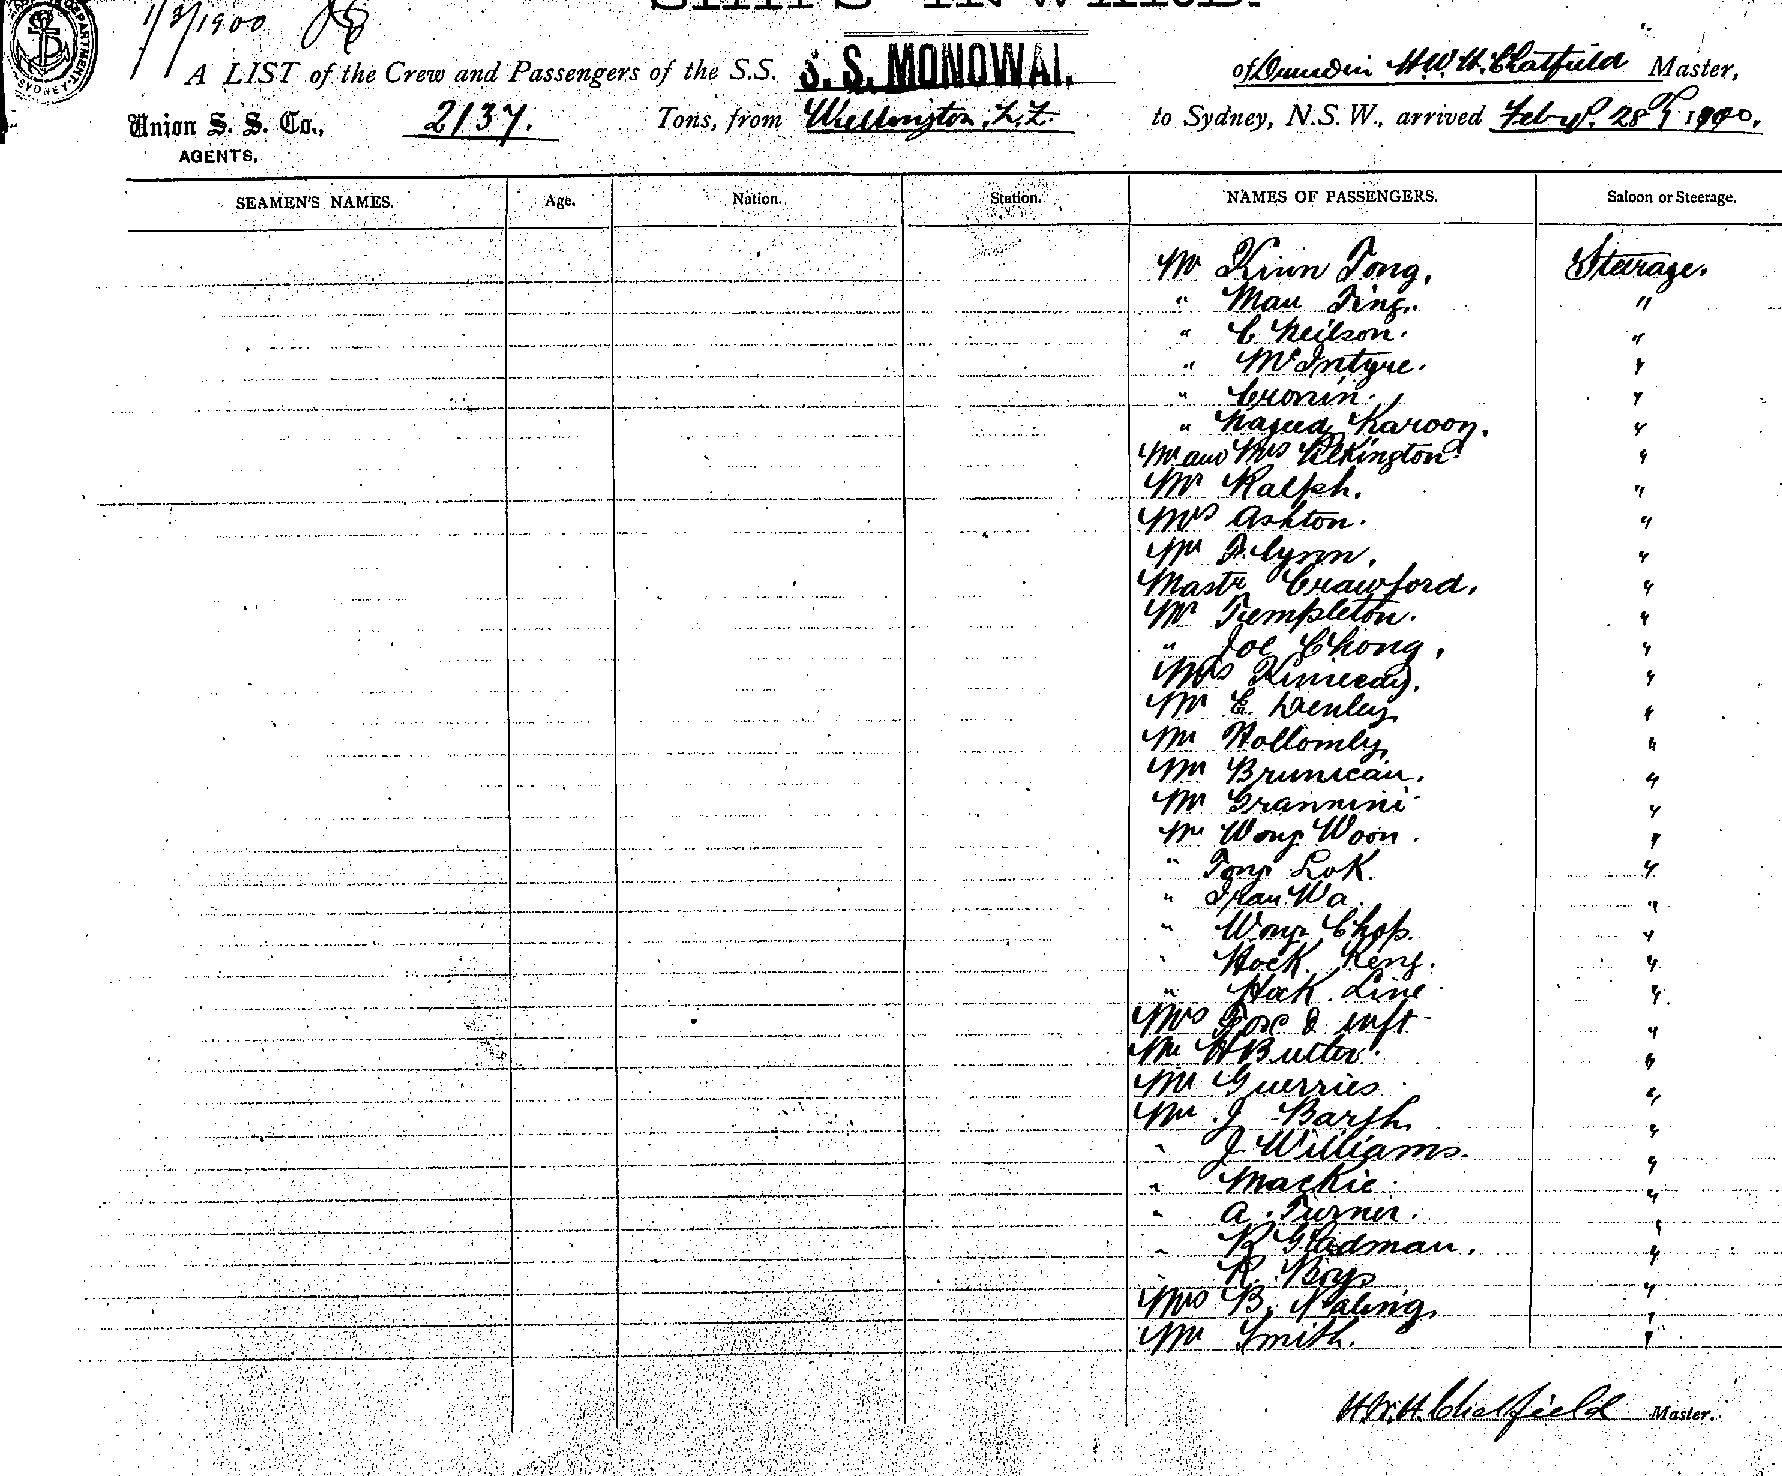 SHIPS INWARD.
1/3/1900
A LIST of the Crew and Passengers of the S.S. S. S. MONOWAI. of Dunedin H.W.H. Chatfield Master,
Union S. S. Co., 2137. Tons, from Wellington, N.Z. to Sydney, N.S.W., arrived Feby. 28th 1900.
AGENTS,
SEAMEN'S NAMES. Age. Nation. Station. NAMES OF PASSENGERS. Saloon or Steerage.
Mr Kinn Tong. Steerage.
" Mau Ting. "
" C Neilson. "
" McIntyre. "
" Cronin. "
" Karoon. "
Mr and Mrs Pilkington "
Mr Ralph. "
Mrs Ashton. "
Mr Flynn. "
Mastr Crawford. "
Mr Templeton. "
" Joe Chong. "
Mrs "
Mr E. Denley "
Mr Hollomby "
Mr Bruneau. "
Mr Grannini "
Mr Wong Woon. "
" Tong Lok. "
" Wa. "
" Wong Chop. "
" Hock Keng. "
" Hock Line "
Mrs Fox & inft "
Mr H Butler. "
Mr Guerries "
Mr J Barth. "
" J Williams. "
" Mackie. "
" A. Turner. "
" R Gladman. "
" R. Boys "
Mrs B. "
Mr Smith. "
H.W.H. Chatfield Master.